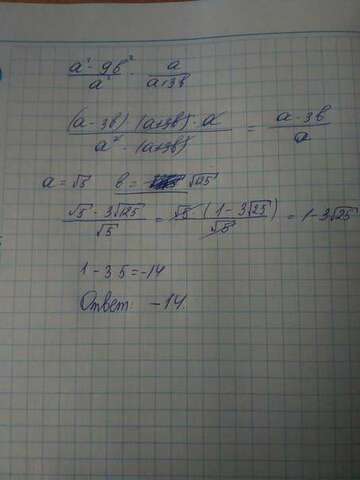 a² - 9b² / a² · a / a+3b
(a - 3b) · (a+3b) · a / a² · (a+3b) = a - 3b / a
a = √5 b = √125
√5 - 3√125 / √5 = √5 (1 - 3√25) / √5 = 1 - 3√25
1 - 3·5 = -14
Ответ: -14.